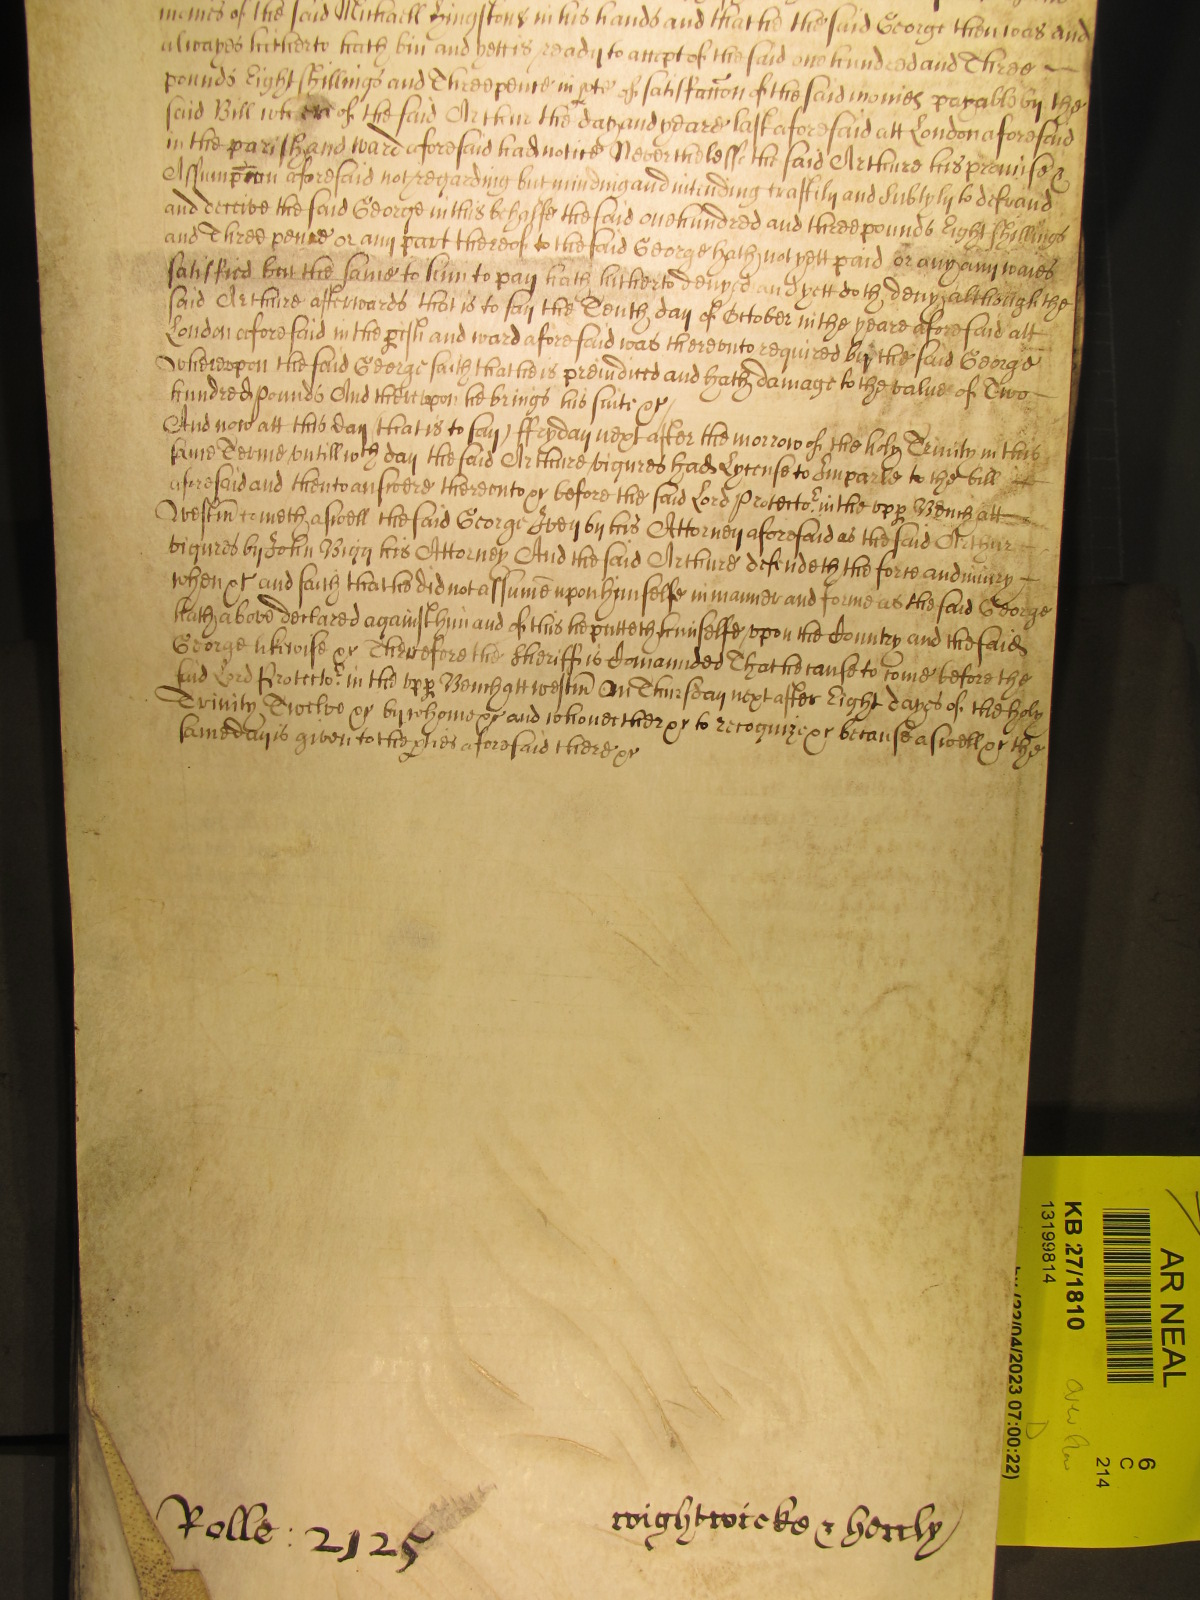 monies of the said Michaell Kingstone in his hands and that he the said George then was and
alwayes hitherto hath bin and yett is ready to accept of the said one hundred and Three
pounds Eight Shillings and Threepence in pte of satisfaccon of the said monies payable by the
said Bill whereof the said Arthur the day and yeare last aforesaid att London aforesaid
in the parish and ward aforesaid had notice Neverthelesse the said Arthure his promise &
Assumpcon aforesaid not regarding but minding and intending craftily and subtyly to defraud
and deceive the said George in this behalfe the said one hundred and three pounds Eight Shillings
and Three pence or any part thereof to the said George hath not yett paid or any waies
satisfied but the same to him to pay hath hitherto denyed and yett doth deny although the
said Arthure afterwards that is to say the Tenth day of October in the yeare aforesaid att
London aforesaid in the pish and ward aforesaid was thereunto required by the said George
Whereupon the said George saith that he is preiudiced and hath damage to the value of Two
hundred pounds And thereupon he brings his suite &c
And now att this day (that is to say) ffryday next after the morrow of the holy Trinity in this
same Terme untill wch day the said Arthure Vigures had Lycense to Imparle to the bill
aforesaid and then to answere thereunto &c before the said Lord Protector in the upp Bench att
Westm cometh aswell the said George by his Attorney aforesaid as the said Arthur
Vigures by John Bigg his Attorney And the said Arthure defendeth the force and iniury
when &c and saith that he did not assume upon himselfe in manner and forme as the said George
hath above declared against him and of this he putteth himselfe upon the Country and the said
George likewise &c Therefore the Sheriff is Comanded That he cause to come before the
said Lord Protector in the upp Bench att westm On Thursday next after Eight dayes of the holy
Trinity Twelve &c by whome &c and who neither &c to recognize &c because aswell &c the
same day is given to the pties aforesaid there &c
Rolle : 2125
wightwicke & henly
AR NEAL
KB 27/1810
13199814
6
C
214
(22/04/2023 07:00:22)